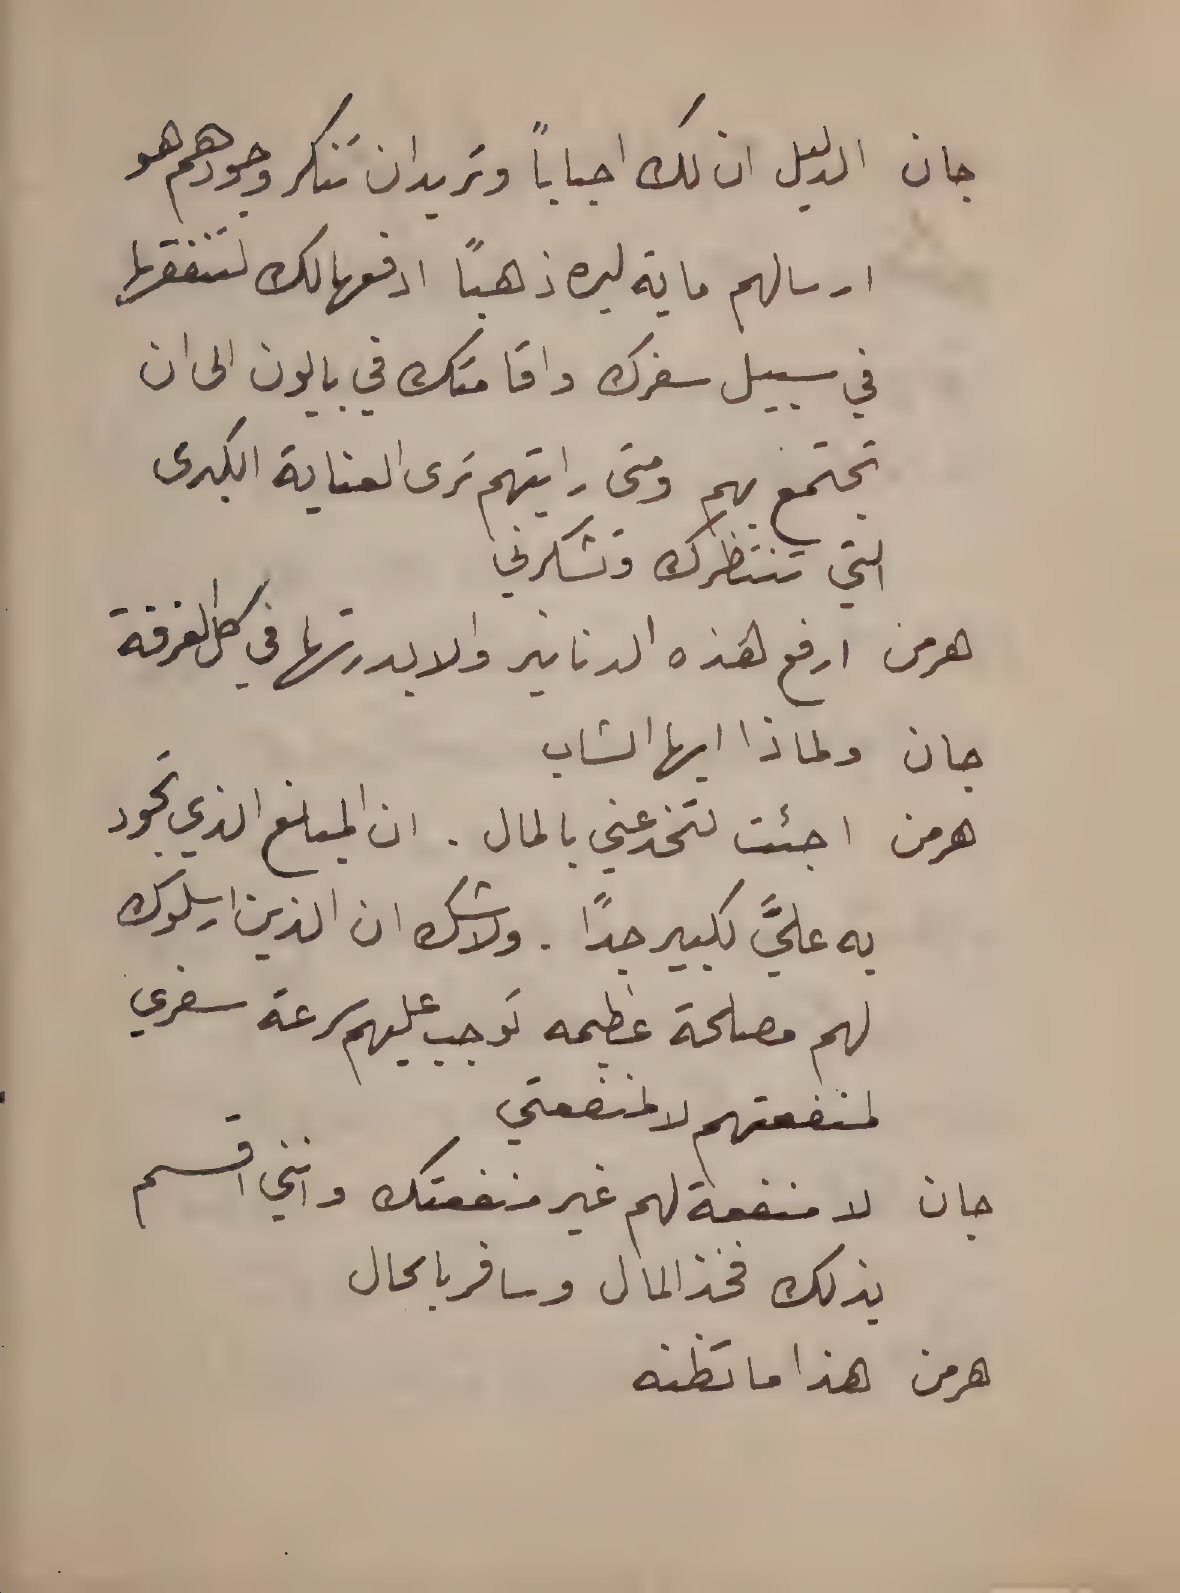 جان الدليل ان لك احباباً وتريد ان تنكر وجودهم هو
ارسالهم ماية ليره ذهبًا ادفعها لك لتنفقها
في سبيل سفرك واقامتك في بايون الى ان
تجتمع بهم ومتى رايتهم ترى العناية الكبرى
التي تنتظرك وتشكرني
هرمن ارفع هذه الدنانير والا بدرتها في كل الغرفة
جان ولماذا ايها الشاب
هرمن اجئت لتخدعني بالمال . ان المبلغ الذي تجود
به عليَّ لكبير جدًا . ولاشك ان الذين ارسلوك
لهم مصلحة عظيمه توجب عليهم سرعة سفري
لمنفعتهم لا لمنفعتي
جان لا منفعة لهم غير منفعتك وانني اقسم
بذلك فخذ المال وسافر بالحال
هرمن هذا ما تظنه